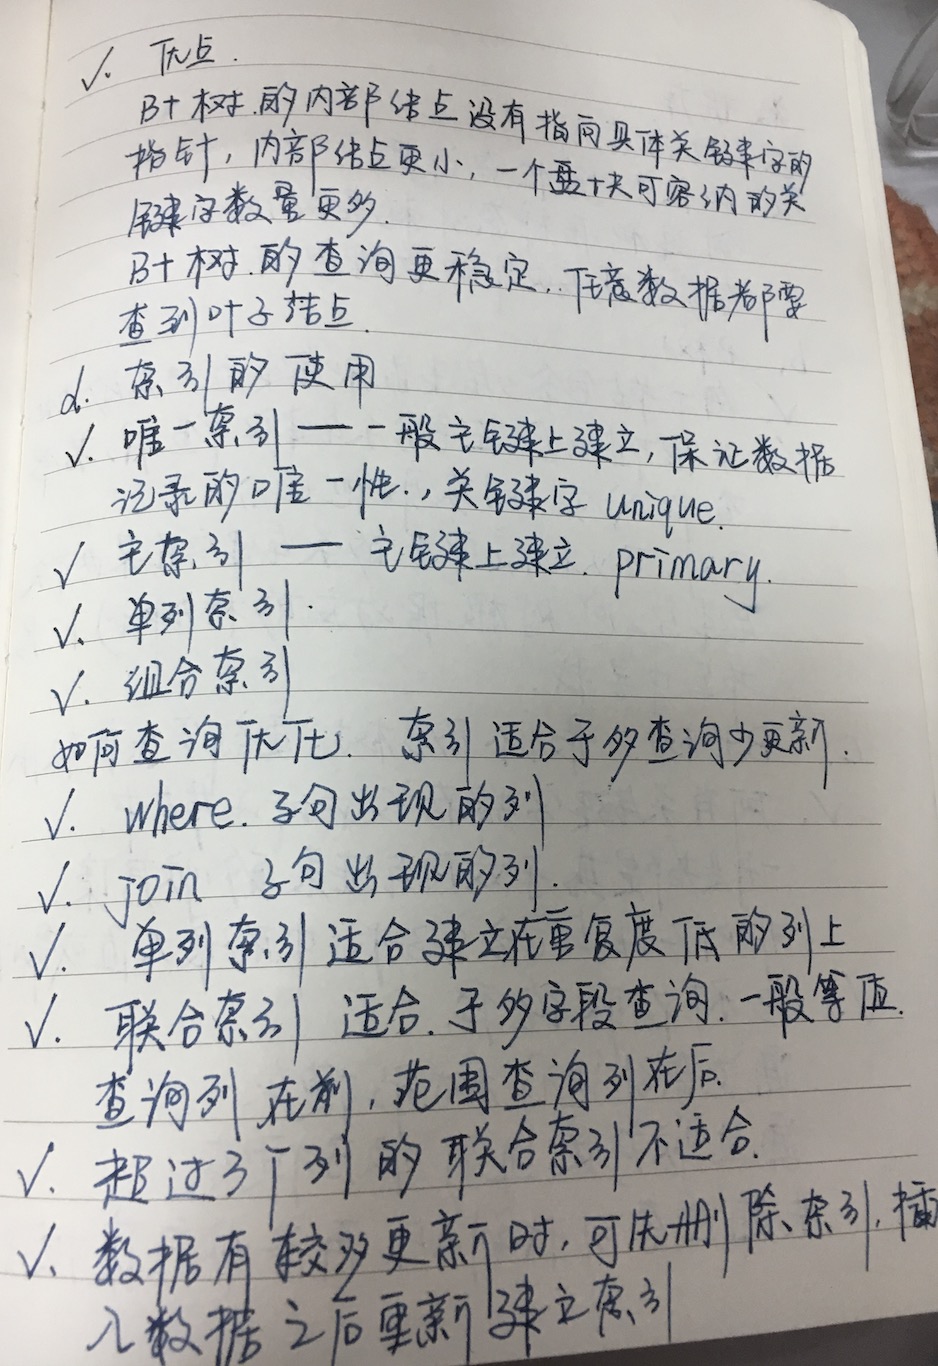 ✓. 优点.
B+树的内部结点没有指向具体关键字的
指针,内部结点更小,一个盘块可容纳的关
键字数量更多.
B+树的查询更稳定.,任意数据都要
查到叶子结点.
d. 索引的使用
✓. 唯一索引——一般主键上建立,保证数据
记录的唯一性.,关键字 unique.
✓ 主索引——主键上建立. primary.
✓. 单列索引.
✓. 组合索引
如何查询优化. 索引适合于多查询少更新.
✓. where. 子句出现的列
✓. join 子句出现的列.
✓. 单列索引适合建立在重复度低的列上
✓. 联合索引适合.于多字段查询. 一般等值.
查询列在前,范围查询列在后.
✓. 超过3个列的联合索引不适合.
✓. 数据有较多更新时,可先删除索引,插
入数据之后重新建立索引